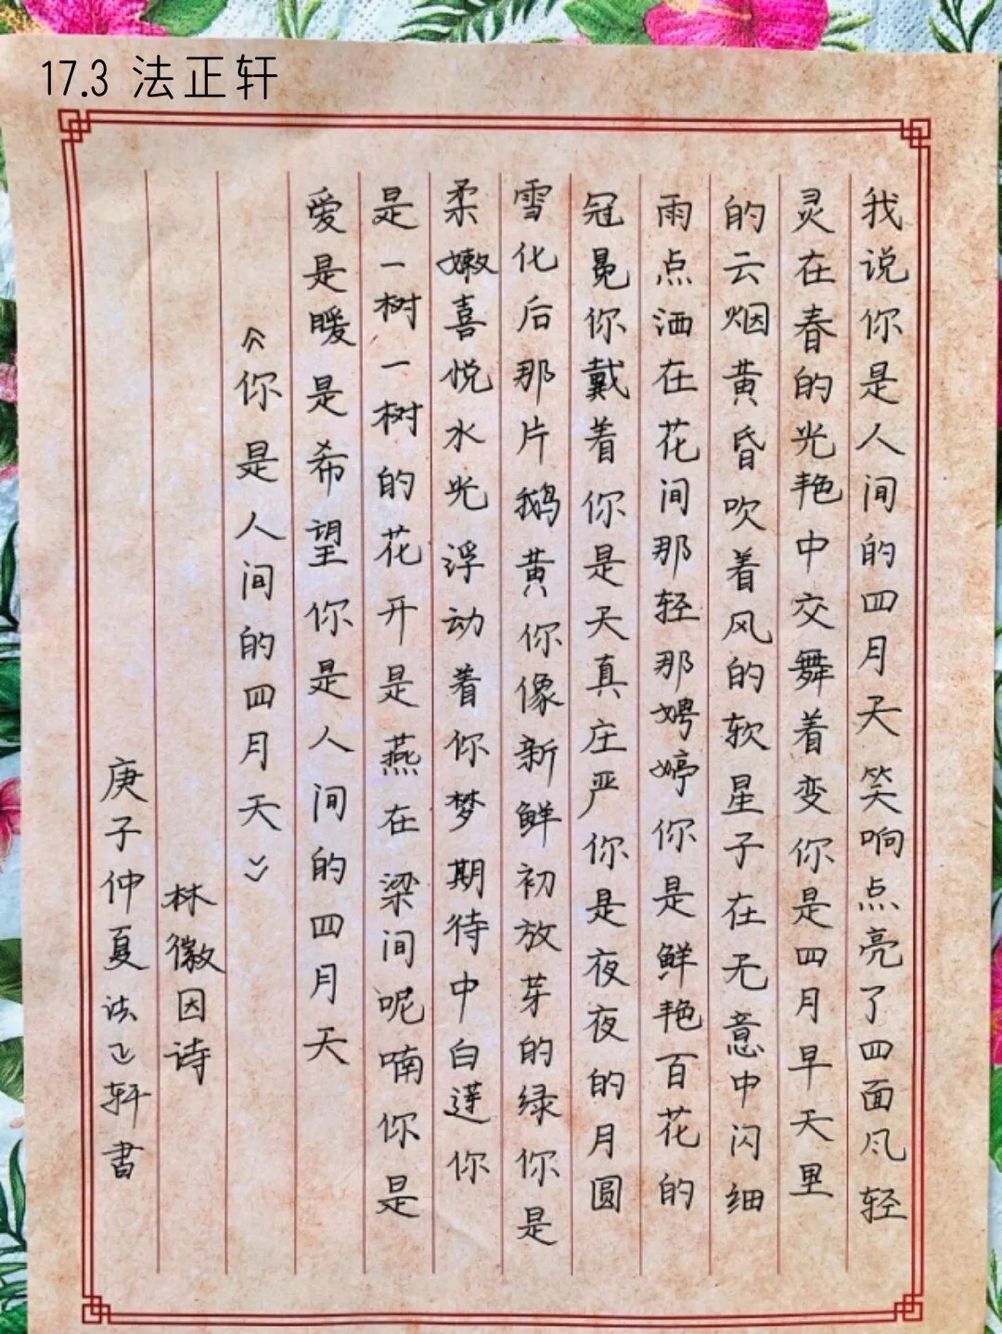 17.3 法正轩
我说你是人间的四月天笑响点亮了四面风轻
灵在春的光艳中交舞着变你是四月早天里
的云烟黄昏吹着风的软星子在无意中闪细
雨点洒在花间那轻那娉婷你是鲜艳百花的
冠冕你戴着你是天真庄严你是夜夜的月圆
雪化后那片鹅黄你像新鲜初放芽的绿你是
柔嫩喜悦水光浮动着你梦期待中白莲你
是一树一树的花开是燕在梁间呢喃你是
爱是暖是希望你是人间的四月天
《你是人间的四月天》
林徽因诗
庚子仲夏法正轩書